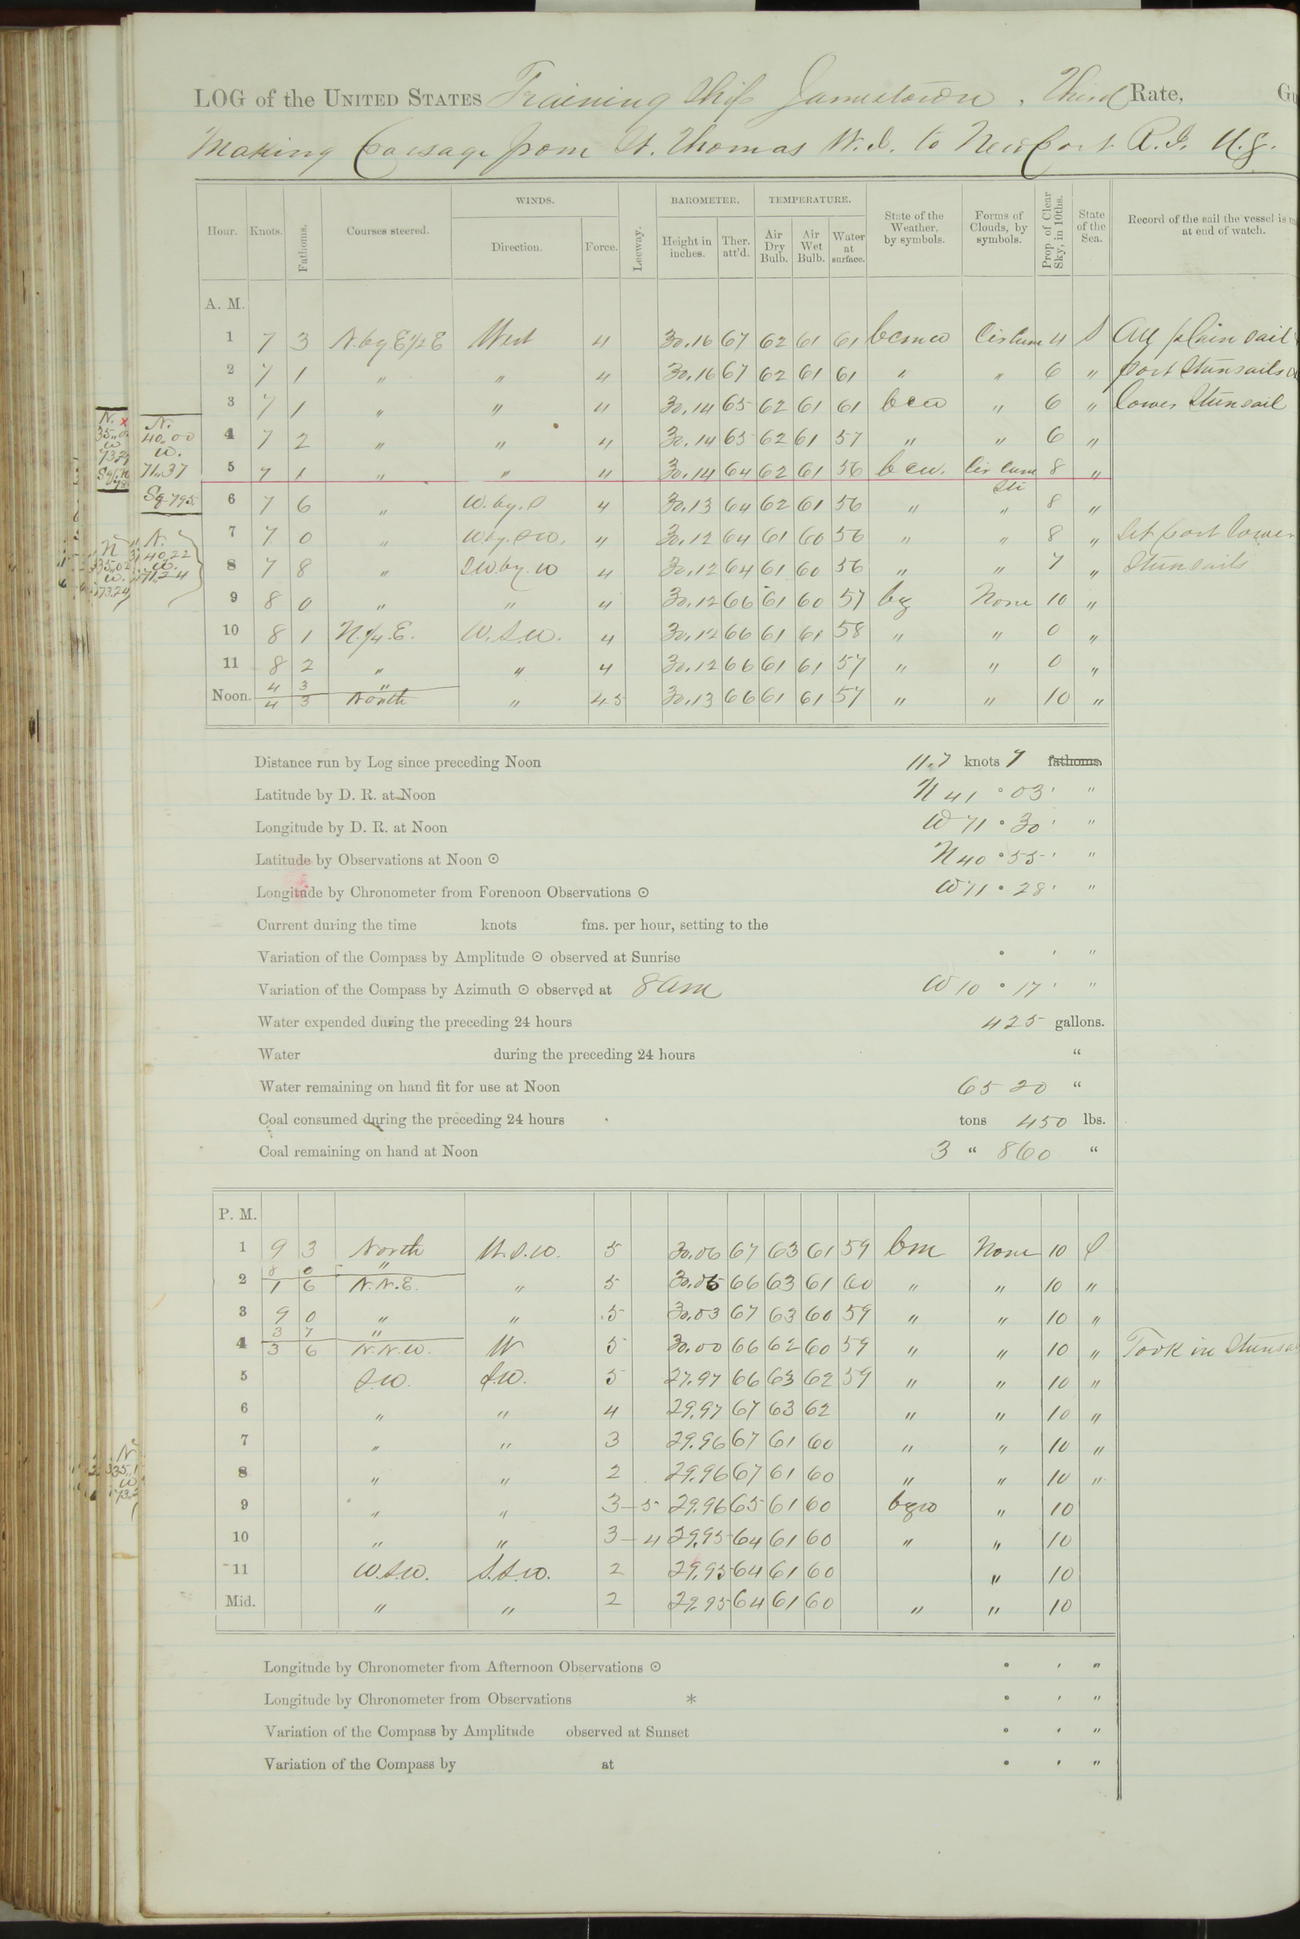 LOG of the UNITED STATES Training Ship Jamestown, Third Rate,
Making Passage from St. Thomas W.I. to Newport R.I. U.S.
WINDS. BAROMETER. TEMPERATURE.
Hour. Knots. Fathoms. Courses steered. Direction. Force. Leeway. Height in inches. Ther. att'd. Air Dry Bulb. Air Wet Bulb. Water at surface. State of the Weather, by symbols. Forms of Clouds, by symbols. Prop. of Clear Sky, in 10ths. State of the Sea. Record of the sail the vessel is
at end of watch.
A. M.
1 7 3 N. by E ½ E West 4 30.16 67 62 61 61 bcmw Cir Cum 4 S All plain sail
2 7 1 " " 4 30.16 67 62 61 61 " " 6 " port Stunsails
3 7 1 " " 4 30.14 65 62 61 61 bcw " 6 " lower Stunsail
4 7 2 " " 4 30.14 65 62 61 57 " " 6 "
5 7 1 " " 4 30.14 64 62 61 56 bcw. Cir Cum 8 "
Str
6 7 6 " W. by. S 4 30.13 64 62 61 56 " " 8 "
7 7 0 " W by. SW. " 30.12 64 61 60 56 " " 8 " Set port lower
8 7 8 " SW by. W 4 30.12 64 61 60 56 " " 7 " Stunsails
9 8 0 " " 4 30.12 66 61 60 57 bz None 10 "
10 8 1 N. ¼. E. W. S. W. 4 30.12 66 61 61 58 " " 0 "
11 8 2 " " 4 30.12 66 61 61 57 " " 0 "
4 3 "
Noon. 4 3 North " 4.5 30.13 66 61 61 57 " " 10 "
N.
40.00
W.
71.37
Sq. 795
N.
40.22
W.
71.24
Distance run by Log since preceding Noon 11.7 knots 7 fathoms.
Latitude by D. R. at Noon N 41 ° 03 ' "
Longitude by D. R. at Noon W 71 ° 30 ' "
Latitude by Observations at Noon ⊙ N 40 ° 55 ' "
Longitude by Chronometer from Forenoon Observations ⊙ W 71 ° 28 ' "
Current during the time knots fms. per hour, setting to the
Variation of the Compass by Amplitude ⊙ observed at Sunrise ° ' "
Variation of the Compass by Azimuth ⊙ observed at 8 am W 10 ° 17 ' "
Water expended during the preceding 24 hours 425 gallons.
Water during the preceding 24 hours "
Water remaining on hand fit for use at Noon 6520 "
Coal consumed during the preceding 24 hours tons 450 lbs.
Coal remaining on hand at Noon 3 " 860 "
P. M.
1 9 3 North W. S. W. 5 30.06 67 63 61 59 bm None 10 S
8 0 "
2 1 6 N. N. E. " 5 30.06 66 63 61 60 " " 10 "
3 9 0 " " 5 30.03 67 63 60 59 " " 10 "
3 7 "
4 3 6 N. N. W. W 5 30.00 66 62 60 59 " " 10 " Took in Stunsa
5 S.W. S.W. 5 29.97 66 63 62 59 " " 10 "
6 " " 4 29.97 67 63 62 " " 10 "
7 " " 3 29.96 67 61 60 " " 10 "
8 " " 2 29.96 67 61 60 " " 10 "
9 " " 3-5 29.96 65 61 60 bzw " 10
10 " " 3-4 29.95 64 61 60 " " 10
11 W.S.W. S.S.W. 2 29.95 64 61 60 " 10
Mid. " " 2 29.95 64 61 60 " " 10
Longitude by Chronometer from Afternoon Observations ⊙ ° ' "
Longitude by Chronometer from Observations * ° ' "
Variation of the Compass by Amplitude observed at Sunset ° ' "
Variation of the Compass by at ° ' "